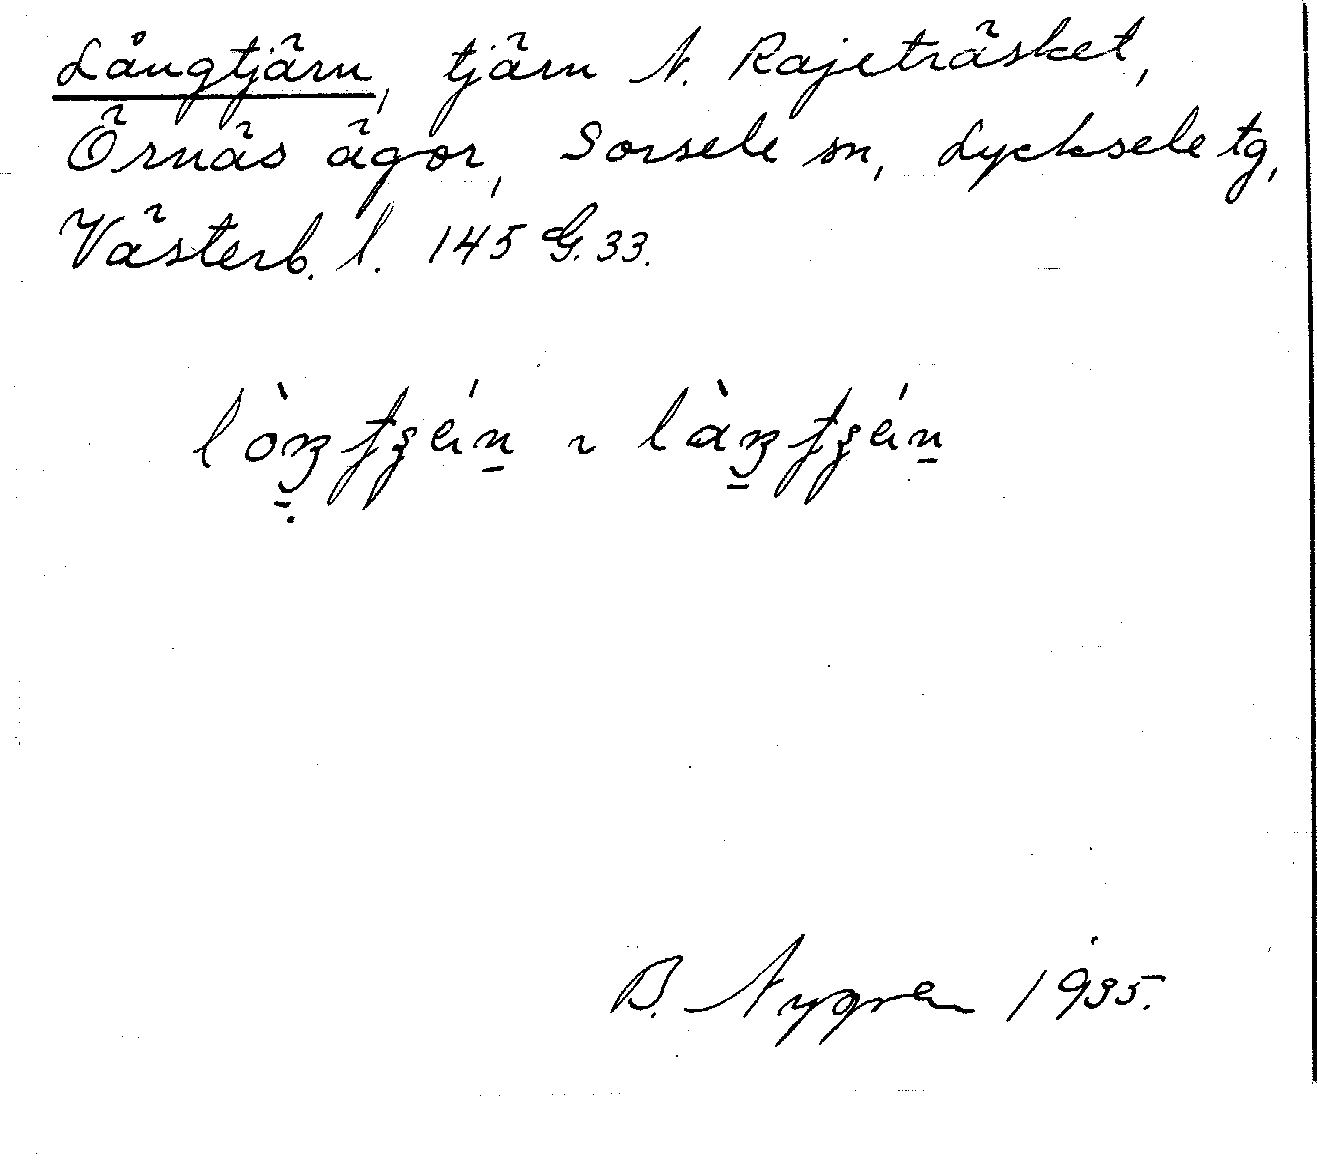 Långtjärn, tjärn N. Rajeträsket,
Örnäs ägor, Sorsele sn, Lycksele tg,
Västerb. l. 145 G. 33.
B. Nygren 1935.